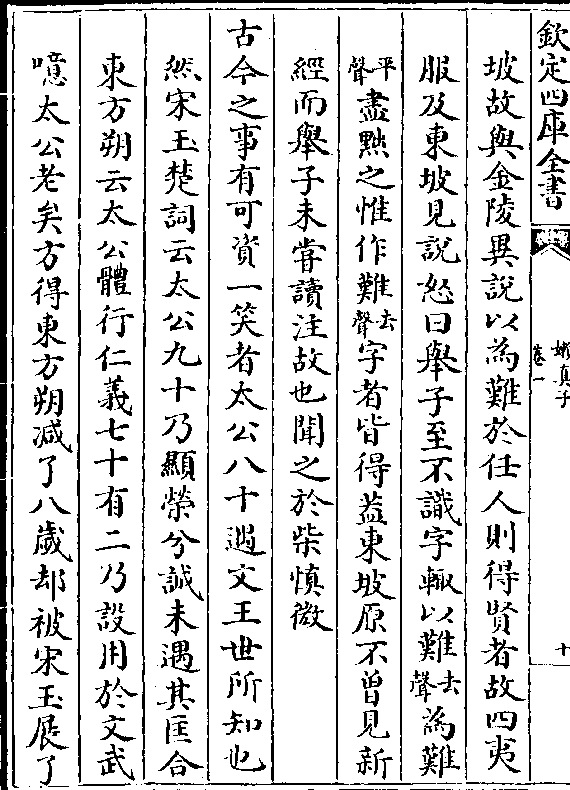 欽定四庫全書
嬾真子
卷一
十
坡故與金陵異說以為難於任人則得賢者故四夷
服及東坡見說怒曰舉子至不識字輒以難去聲為難
平聲盡黜之惟作難去聲字者皆得葢東坡原不曾見新
經而舉子未嘗讀注故也聞之於柴慎微
古今之事有可資一笑者太公八十遇文王世所知也
然宋玉楚詞云太公九十乃顯榮兮誠未遇其匡合
東方朔云太公體行仁義七十有二乃設用於文武
噫太公老矣方得東方朔減了八歲却被宋玉展了